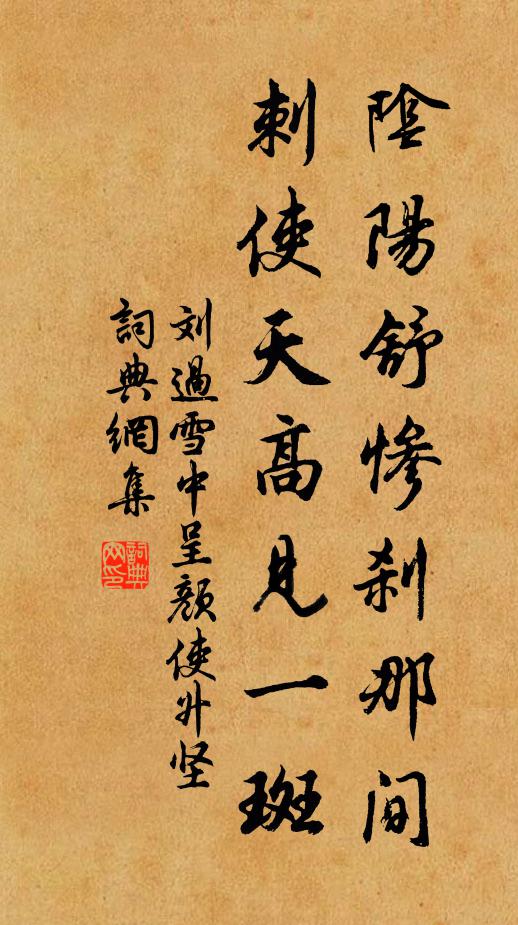 陰陽舒慘剎那間
刺使天高見一斑
刘過雪中呈顏使升坚
詞典網集
詞典網印